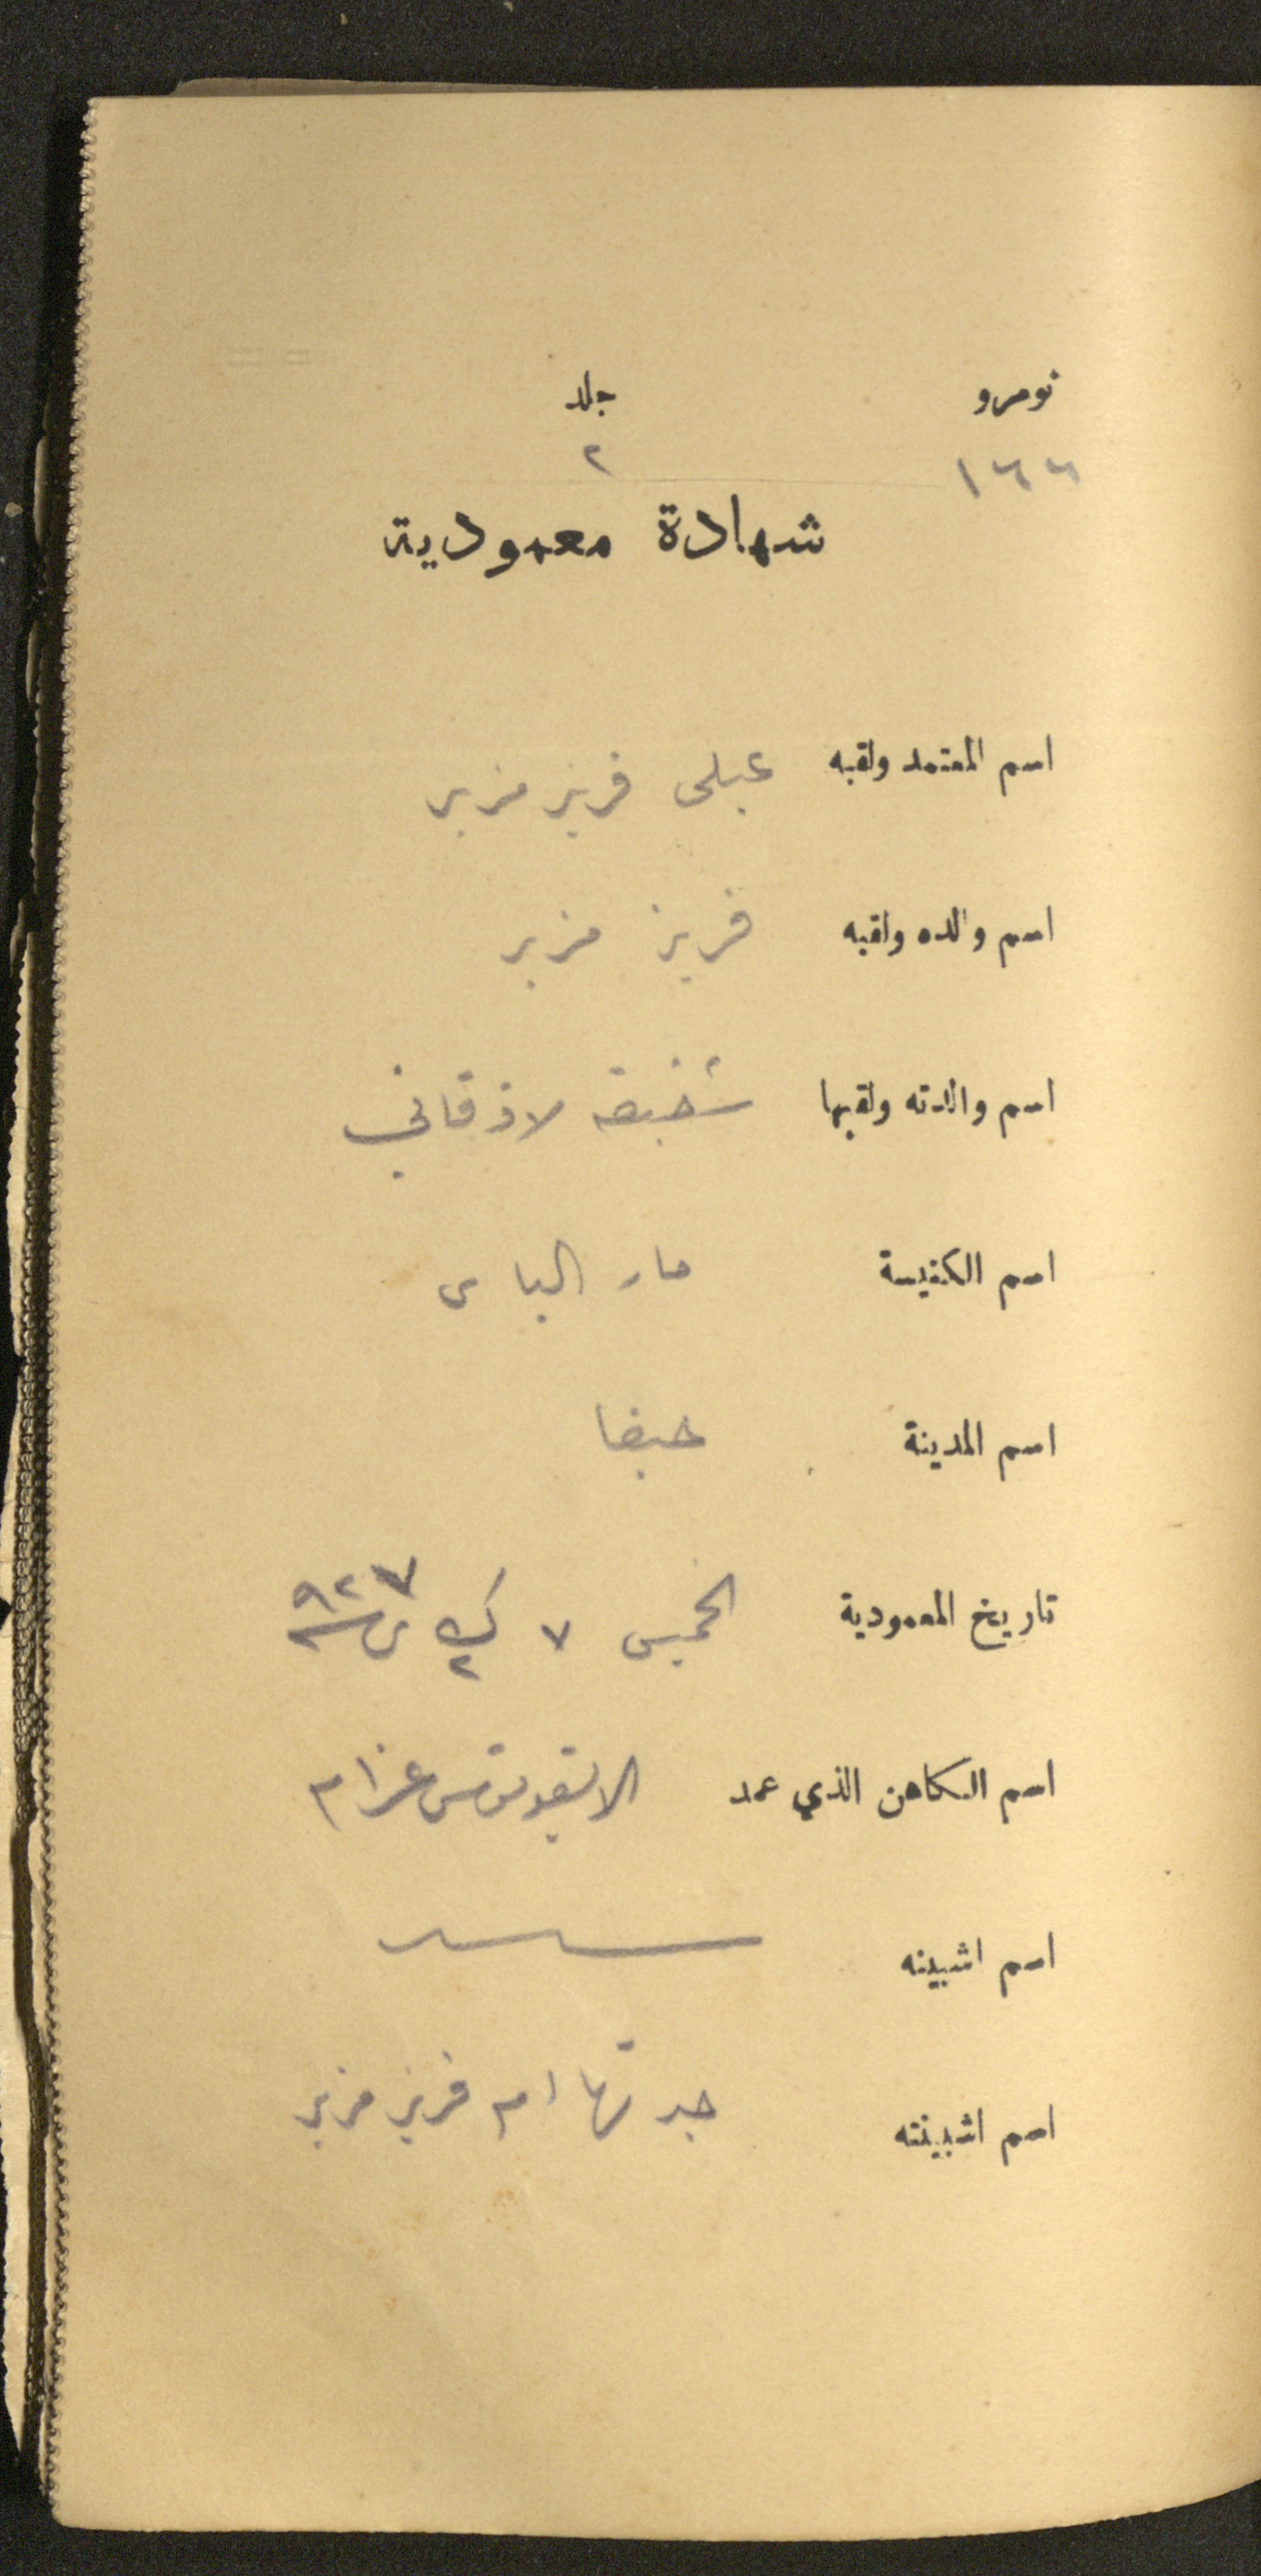 نومرو جلد
١٦٦ ٢
شهادة معمودية
اسم المعتمد ولقبه عبلى فريز مزبر
اسم والده ولقبه فريز مزبر
اسم والدته ولقبها شفيقه لاذقاني
اسم الكنيسة مار الياس
اسم المدينة حيفا
تاريخ المعمودية الخميس ٧ ك٢ سنة ٩٢٧
اسم الكاهن الذي عمد عزام
اسم اشبينه
اسم اشبينته جدتها ام فريز مزبر